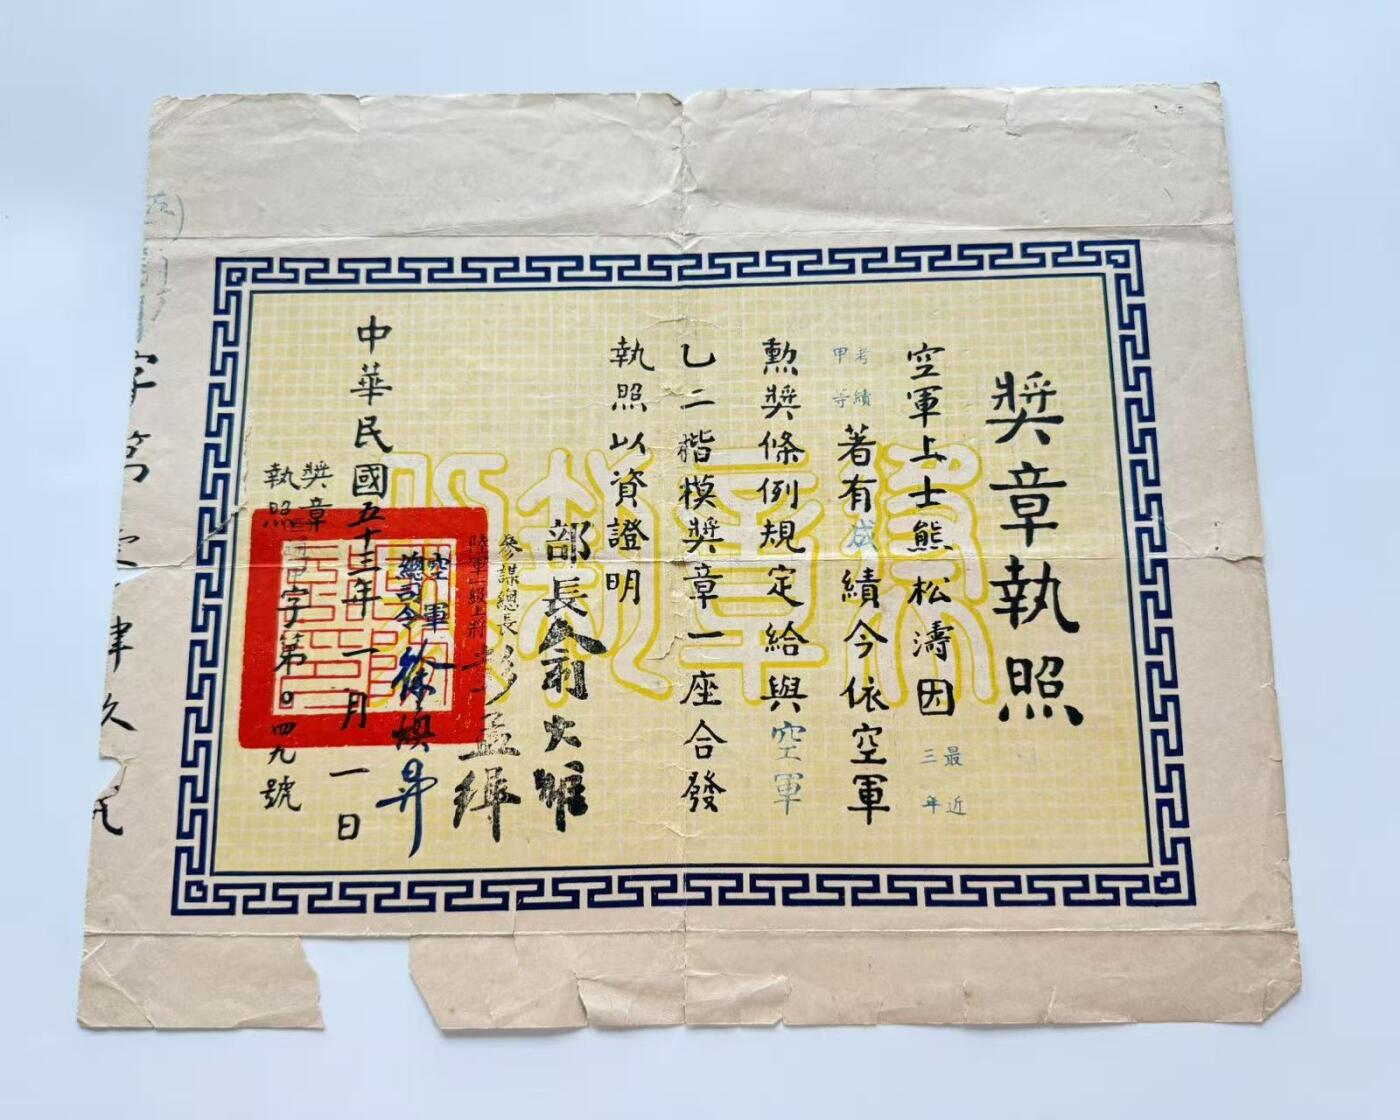 獎章執照
空軍上士熊松濤因最近三年
考績甲等著有成績今依空軍
勲獎條例規定給與空軍
乙二楷模獎章一座合發
執照以資證明
部長俞大維
參謀總長陸軍一級上將彭孟緝
空軍總司令徐煥昇
中華民國五十三年一月一日
獎章執照
字第〇四九號
字第